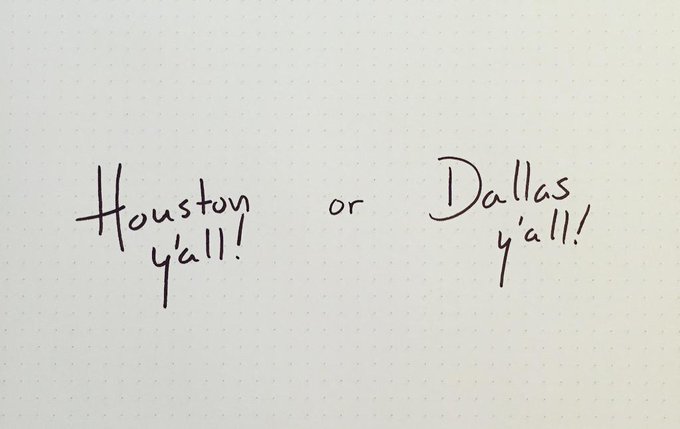 Houston or Dallas
y'all! y'all!